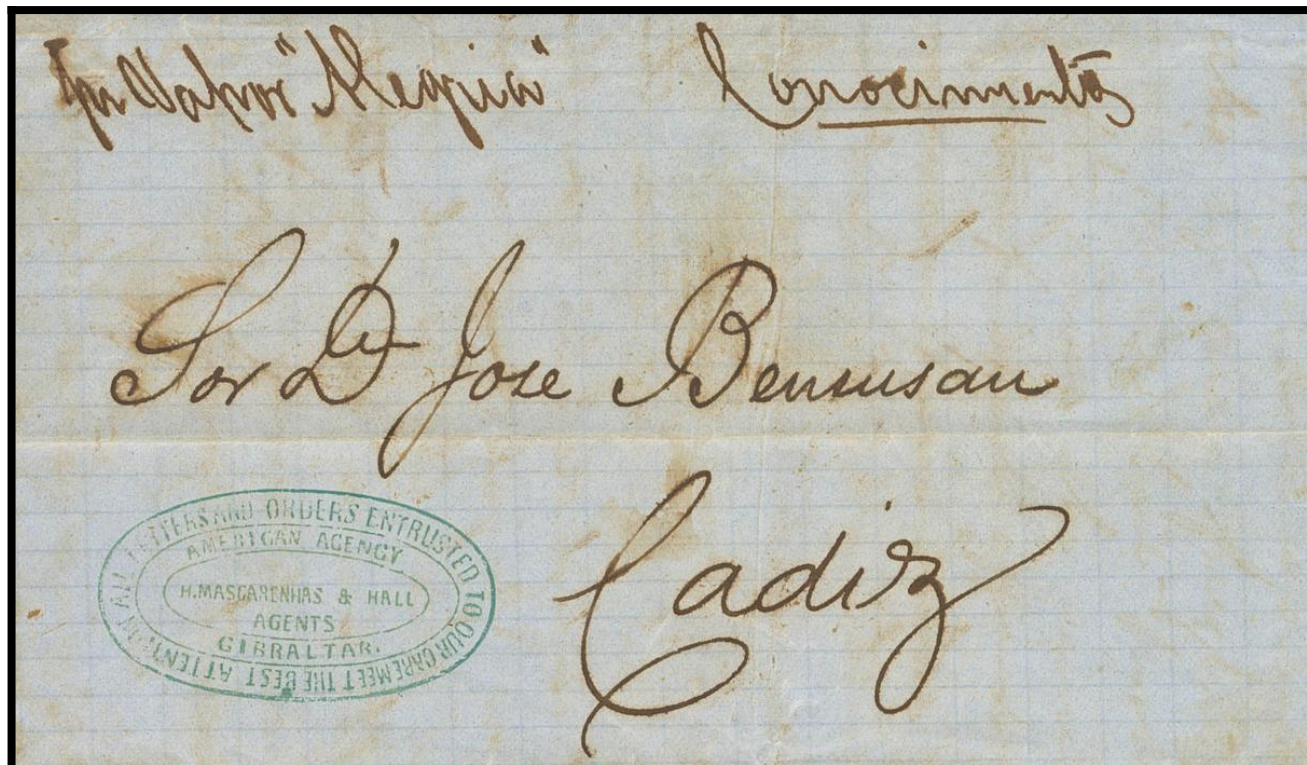 Vapor "Alegria" Conocimientos
Sor Dn Jose Bensusan
Cadiz
ALL LETTERS AND ORDERS ENTRUSTED TO OUR CARE MEET THE BEST ATTENTION
AMERICAN AGENCY
H. MASCARENHAS & HALL
AGENTS
GIBRALTAR.